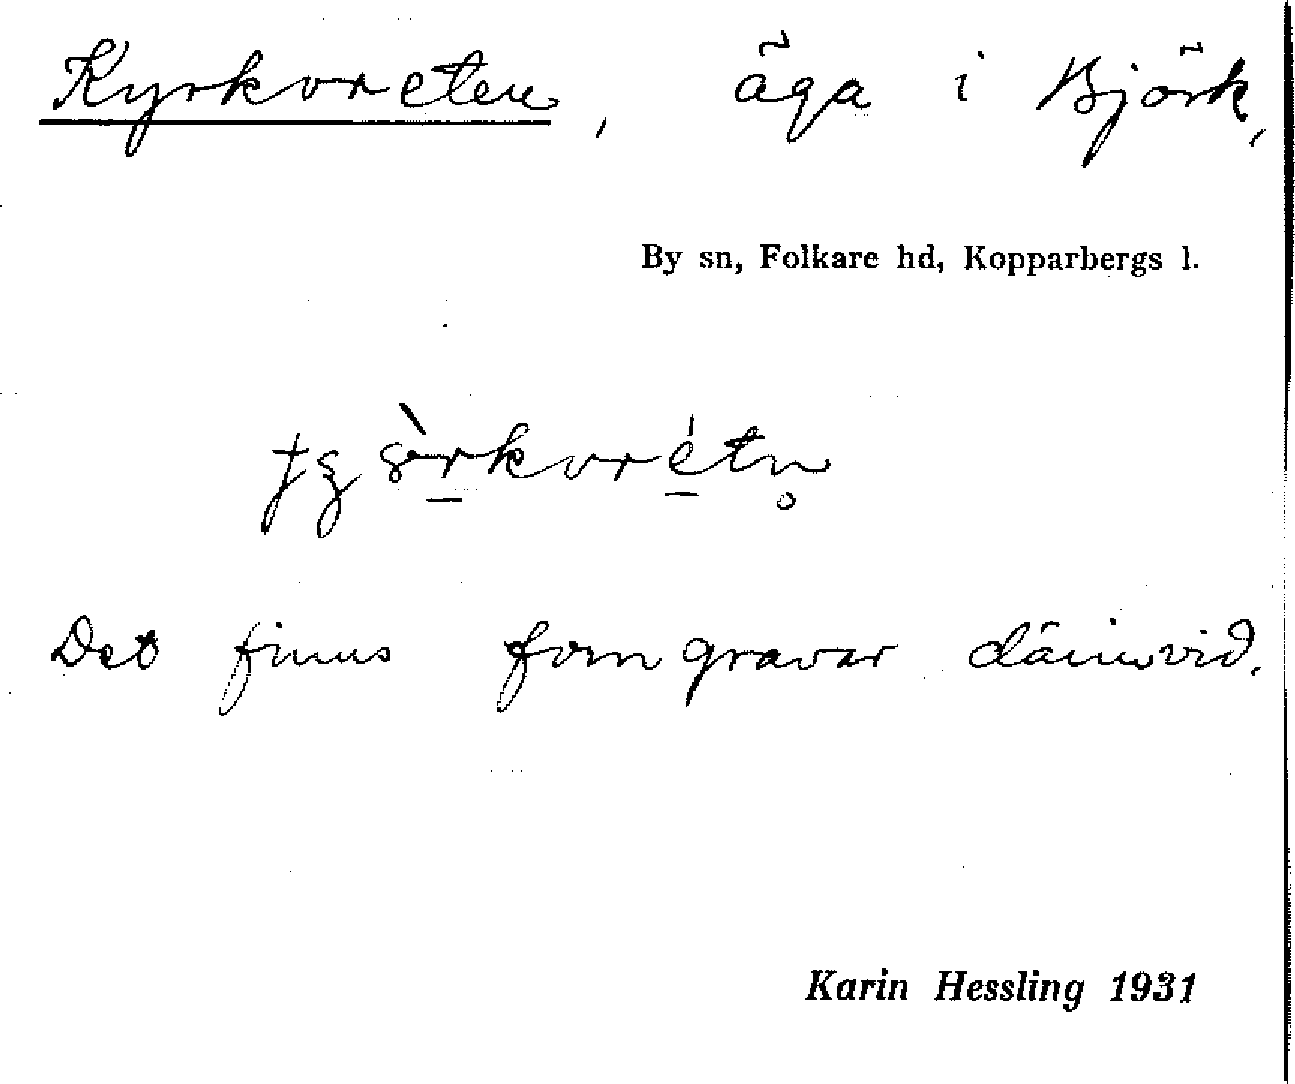 Kyrkvreten, äga i Björk,
By sn, Folkare hd, Kopparbergs l.
Det finns forngravar därinvid.
Karin Hessling 1931